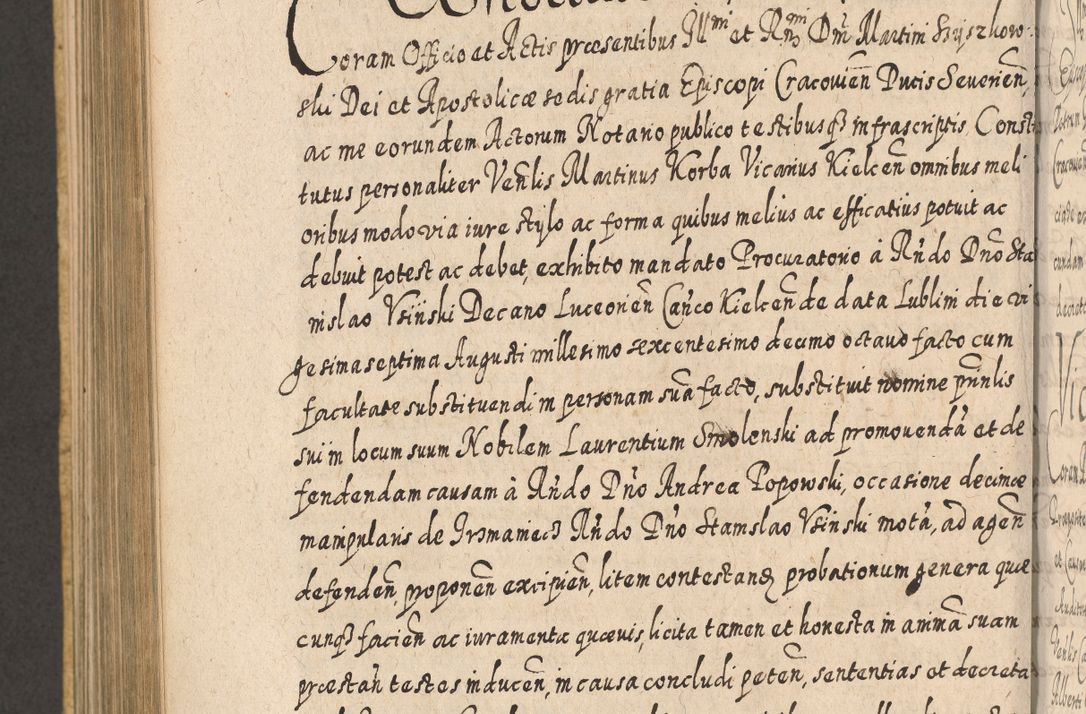 Coram Officio et Actis præsentibus Illmi et Rmi Dni Martini Szyszkow-
ski Dei et Apostolicæ sedis gratia Episcopi Cracovien Ducis Severien,
ac me eorundem Actorum Notario publico testibusqz infrascriptis Consti
tutus personaliter Venlis Martinus Korba Vicarius Kielcen omnibus meli
oribus modo via iure stylo ac forma quibus melius ac efficatius potuit ac
debuit potest ac debet, exhibito mandato Procuratorio à Rndo Dno Sta
nislao Vsinski Decano Luceorien Canco Kielcen de data Lublini die vi
gesima septima Augusti millesimo sexcentesimo decimo octavo facto cum
facultate substituendi in personam sua facto, substituit nomine prinlis
sui in locum suum Nobilem Laurentium Smolenski ad promovendā et de
fendendam causam à Rndo Dno Andrea Popowski, occasione decimæ
manipularis de Rndo Dno Stanislao Vsinski motā, ad agen
defenden, proponen excipien, litem contestanz probationum genera quæ
cunqz facien ac iuramenta quævis, licita tamen et honesta in animā suam
præstan testes inducen, in causa concludi peten, sententias et decreta